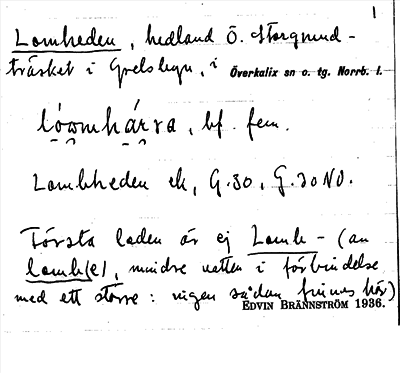 1
Lomheden, hedland Ö. Storgrund-
träsket i Grelsbyn, i Överkalix sn o. tg. Norrb. l.
lówmhárva, bf. fem.
Lombheden ek, G.30, G.30NO.
Första leden är ej Lomb- (an
lomb(e), mindre vatten i förbindelse
med ett större: ingen sådan finnes här)
EDVIN BRÄNNSTRÖM 1936.